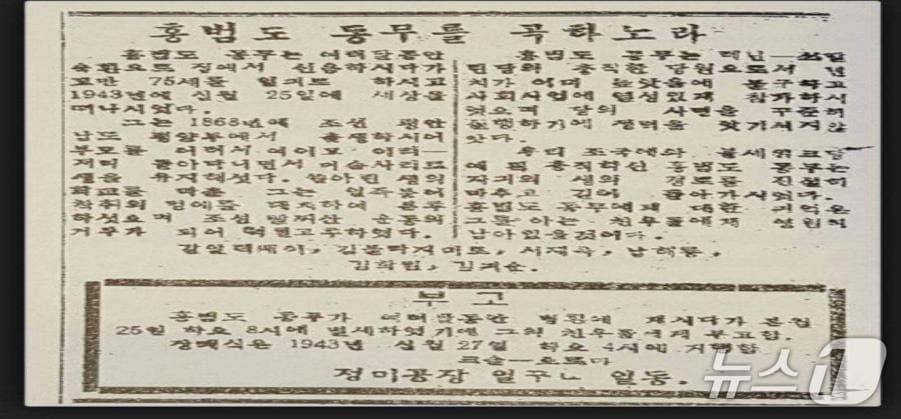 홍범도 동무를 곡하노라
홍범도 동무는 여덟달동안
숙환으로 집에서 신음하시다가
꼬만 75세를 일긔로 하시고
1943년에 십월 25일에 세상을
떠나시었다.
그는 1868년에 조선 평안
남도 평양부에서 출생하시어
부모를 어려서 여이고 이리—
저리 돌아다니면서 머슴사리로
생을 유지해섯다.
학교를 마춘 그는 일즉붙어
착취의 멍에를 대치하여
하섯으며 조선 운동의
거두가 되어
홍범도 동무는 레닌—쓰딸
린당의 충직한 당원으로서 년
처가 이미 높앗음에 불구하고
사회사업에 열성있게 참가하시
엇으며 당의 사변을 꾸준히
실행하기에 정력을 앗기시지않
앗다.
우리 조국에와
에 림 충직하신 홍범도 동무는
자긔의 생의 정로를 진실히
마추고 길이 돌아가시었다.
홍범도 동무에게 대한 긔억은
그를 아는 친우들에게 영원히
남아있을것이다.
강알렉쎄이, 김 서재욱, 남해룡,
김학림, 김긔순.
부고
홍범도 동무가 여러달동안 병환에 게시다가 본월
25일 하오 8시에 별세하였기에 그의 친우들에게 부고함.
장례식은 1943년 십월 27일 하오 4시에 거행함
크슬—오르다
정미공장 일꾸ㄴ 일동.
뉴스1